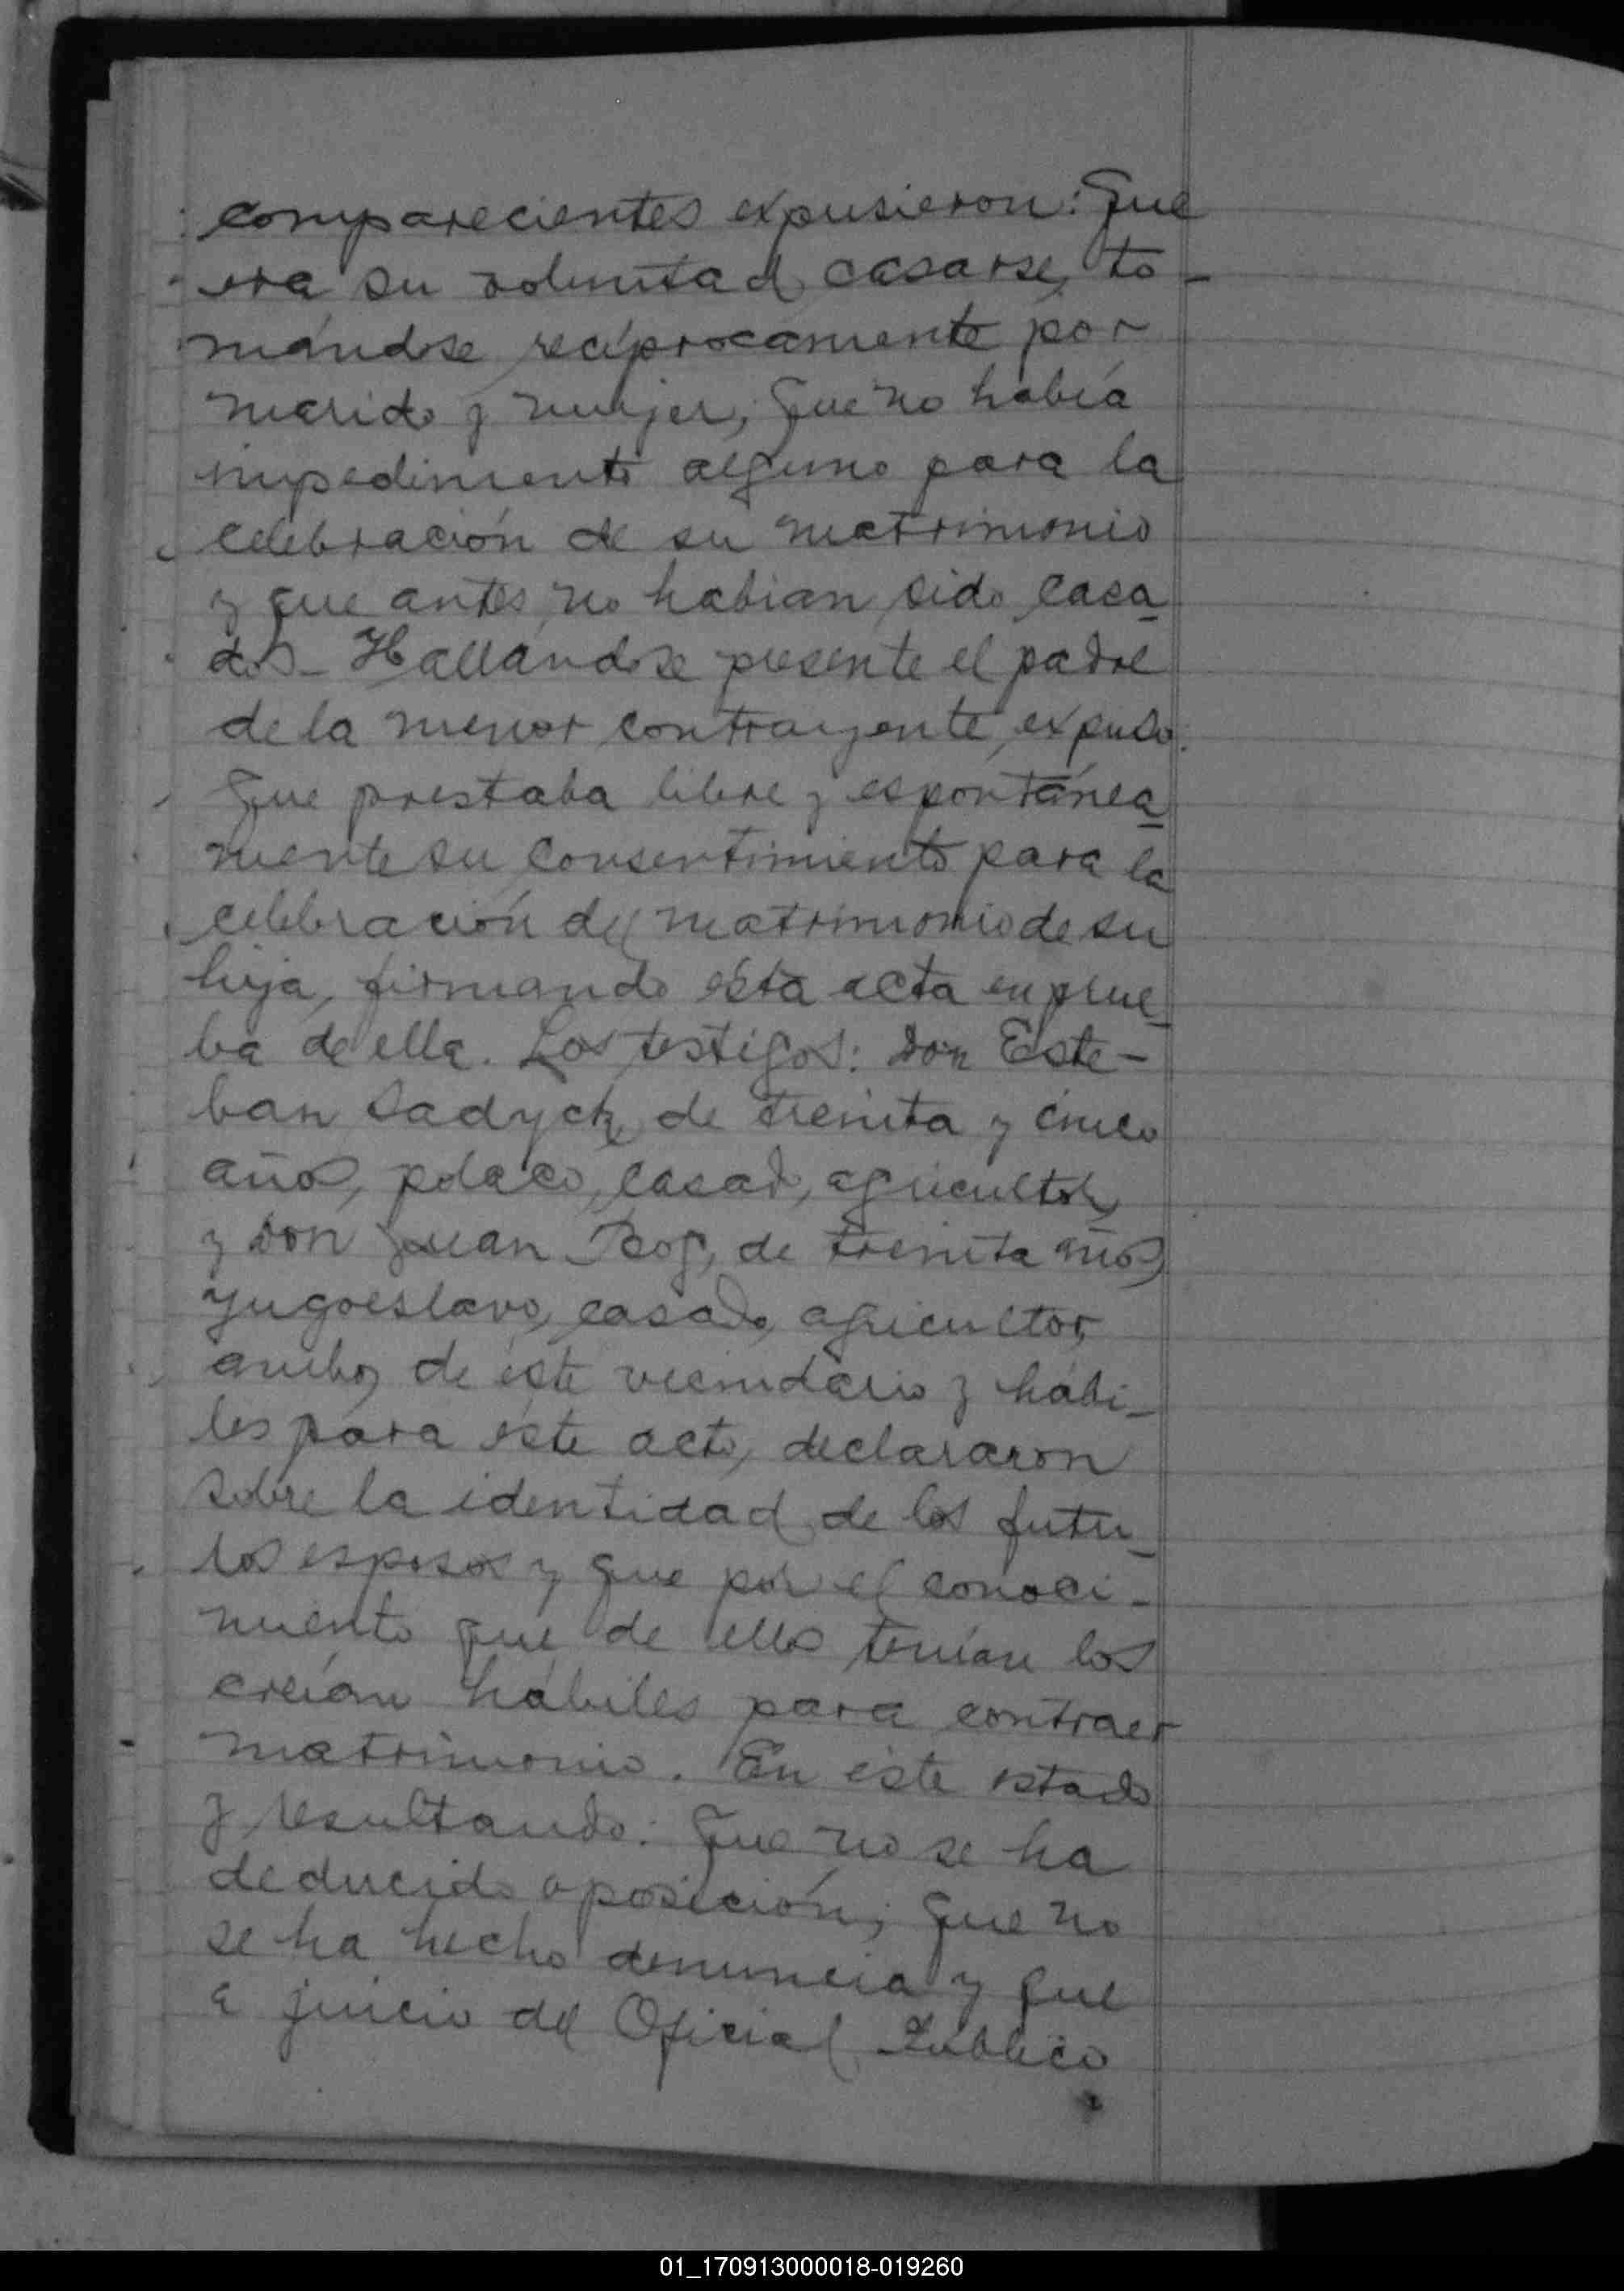 comparecientes expusieron: Que
era su voluntad casarse, to-
mándose recíprocamente por
marido y mujer; que no había
impedimento alguno para la
celebración de su matrimonio
y que antes no habian sido casa
dos - Hallándose presente el padre
de la menor contrayente, expuso:
Que prestaba libre y espontánea
mente su consentimiento para la
celebración del matrimonio de su
hija, firmando ésta acta en prue_
ba de ella. Los testigos: don Este-
ban Sadyck, de treinta y cinco
años, polaco, casado, agricultor,
y don Juan Rog, de treinta años,
yugoeslavo, casado, agricultor,
ambos de éste vecindario y hábi_
les para éste acto, declararon
sobre la identidad de los futu_
ros esposos y que por el conoci-
miento que de ellos tenían los
creían hábiles para contraer
matrimonio. En éste estado
y resultando: Que no se ha
deducido oposición; que no
se ha hecho denuncia y que
a juicio del Oficial Público
01_170913000018-019260